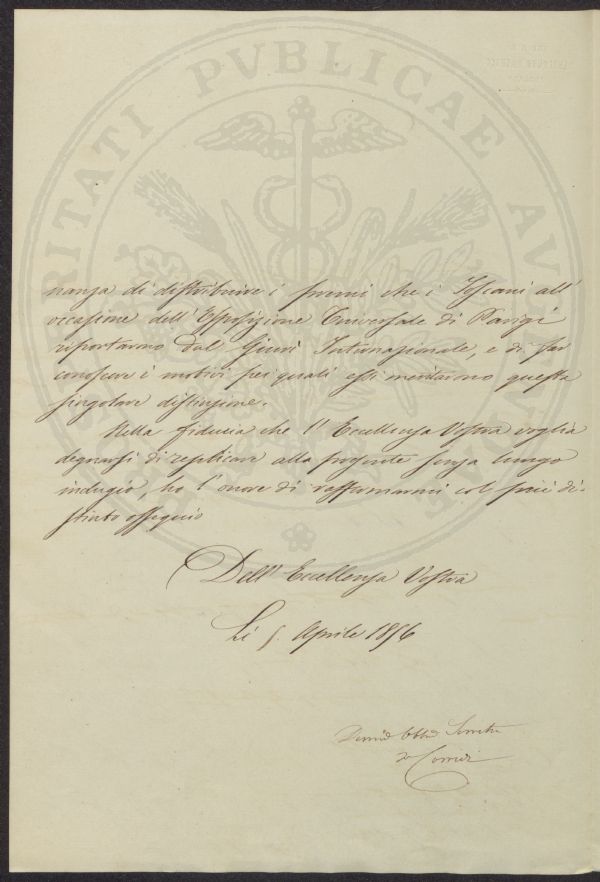 nanza di distribuire i premi che i Toscani all'
occasione dell'Esposizione Universale di Parigi
riportarono dal Giurì Internazionale, e di far
conoscere i motivi pei quali essi meritarono questa
singolare distinzione.
Nella fiducia che l'Eccellenza Vostra voglia
degnarsi di replicare alla presente senza lungo
indugio, ho l'onore di raffermarmi col più di-
stinto ossequio
Dell'Eccellenza Vostra
Li 5. Aprile 1856
Devmo Obbmo Servitre
Corridi
PUBLICAE